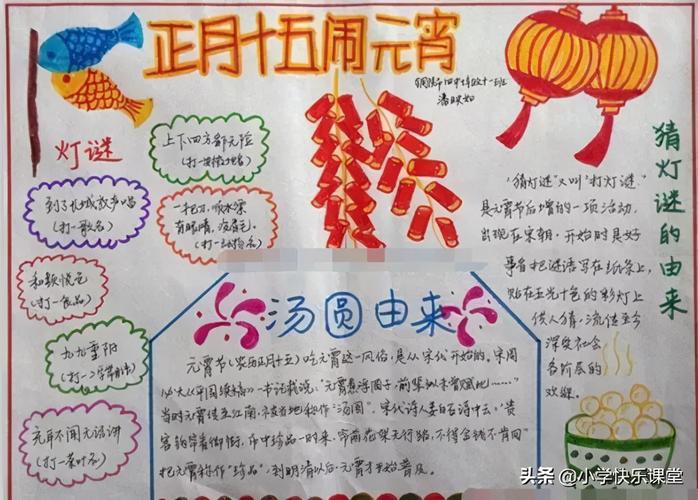 正月十五闹元宵
灯谜
上下四方都无险
到了长城放声唱
(打一歌名)
一把刀,顺水漂
有眼睛,没眉毛。
和颜悦色
(打一食品)
九九重阳
充耳不闻无话讲
(打一茶叶名)
猜灯谜的由来
"猜灯谜"又叫"打灯谜"
是元宵节后增的一项活动,
出现在宋朝。开始时是好
事者把谜语写在纸条上,
贴在五光十色的彩灯上
供人猜,流传至今
深受社会
各阶层的
欢迎。
汤圆由来
元宵节(农历正月十五)吃元宵这一风俗,是从宋代开始的,宋周
一书记载说,"元宵煮浮圆子,前辈似未曾赋此……"
当时元宵传至江南,
宋代诗人姜白石诗中云,"贵
客钩帘看御街,市中珍品一时来,帘前花架无行路,不得金钱不肯回"
把元宵称作"珍品",到明清以后,元宵才开始普及。
头条 @小学快乐课堂